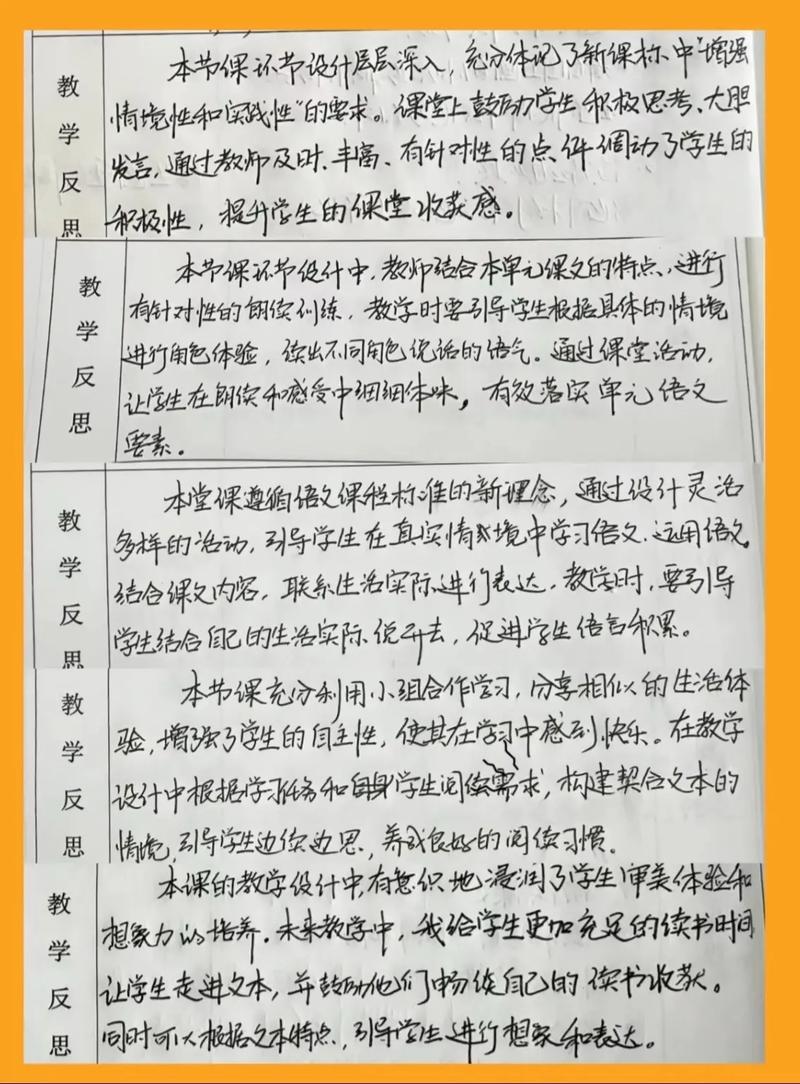 教学反思
本节课环节设计层层深入，充分体现了新课标中“增强
情境性和实践性”的要求。课堂上鼓励学生积极思考、大胆
发言，通过教师及时、丰富、有针对性的点评调动了学生的
积极性，提升学生的课堂收获感。
教学反思
本节课环节设计中，教师结合本单元课文的特点，进行
有针对性的朗读训练，教学时要引导学生根据具体的情境
进行角色体验，读出不同角色说话的语气。通过课堂活动，
让学生在朗读和感受中细细体味，有效落实单元语文
要素。
教学反思
本堂课遵循语文课程标准的新理念，通过设计灵活
多样的活动，引导学生在真实情境中学习语文、运用语文，
结合课文内容，联系生活实际进行表达，教学时，要引导
学生结合自己的生活实际说开去，促进学生语言积累。
教学反思
本节课充分利用小组合作学习，分享相似的生活体
验，增强了学生的自主性，使其在学习中感到快乐。在教学
设计中根据学习任务和自身学生阅读需求，构建契合文本的
情境，引导学生边读边思，养成良好的阅读习惯。
教学反思
本课的教学设计中，有意识地浸润了学生审美体验和
想象力的培养。未来教学中，我给学生更加充足的读书时间
让学生走进文本，并鼓励他们畅谈自己的读书收获。
同时可以根据文本特点，引导学生进行想象和表达。